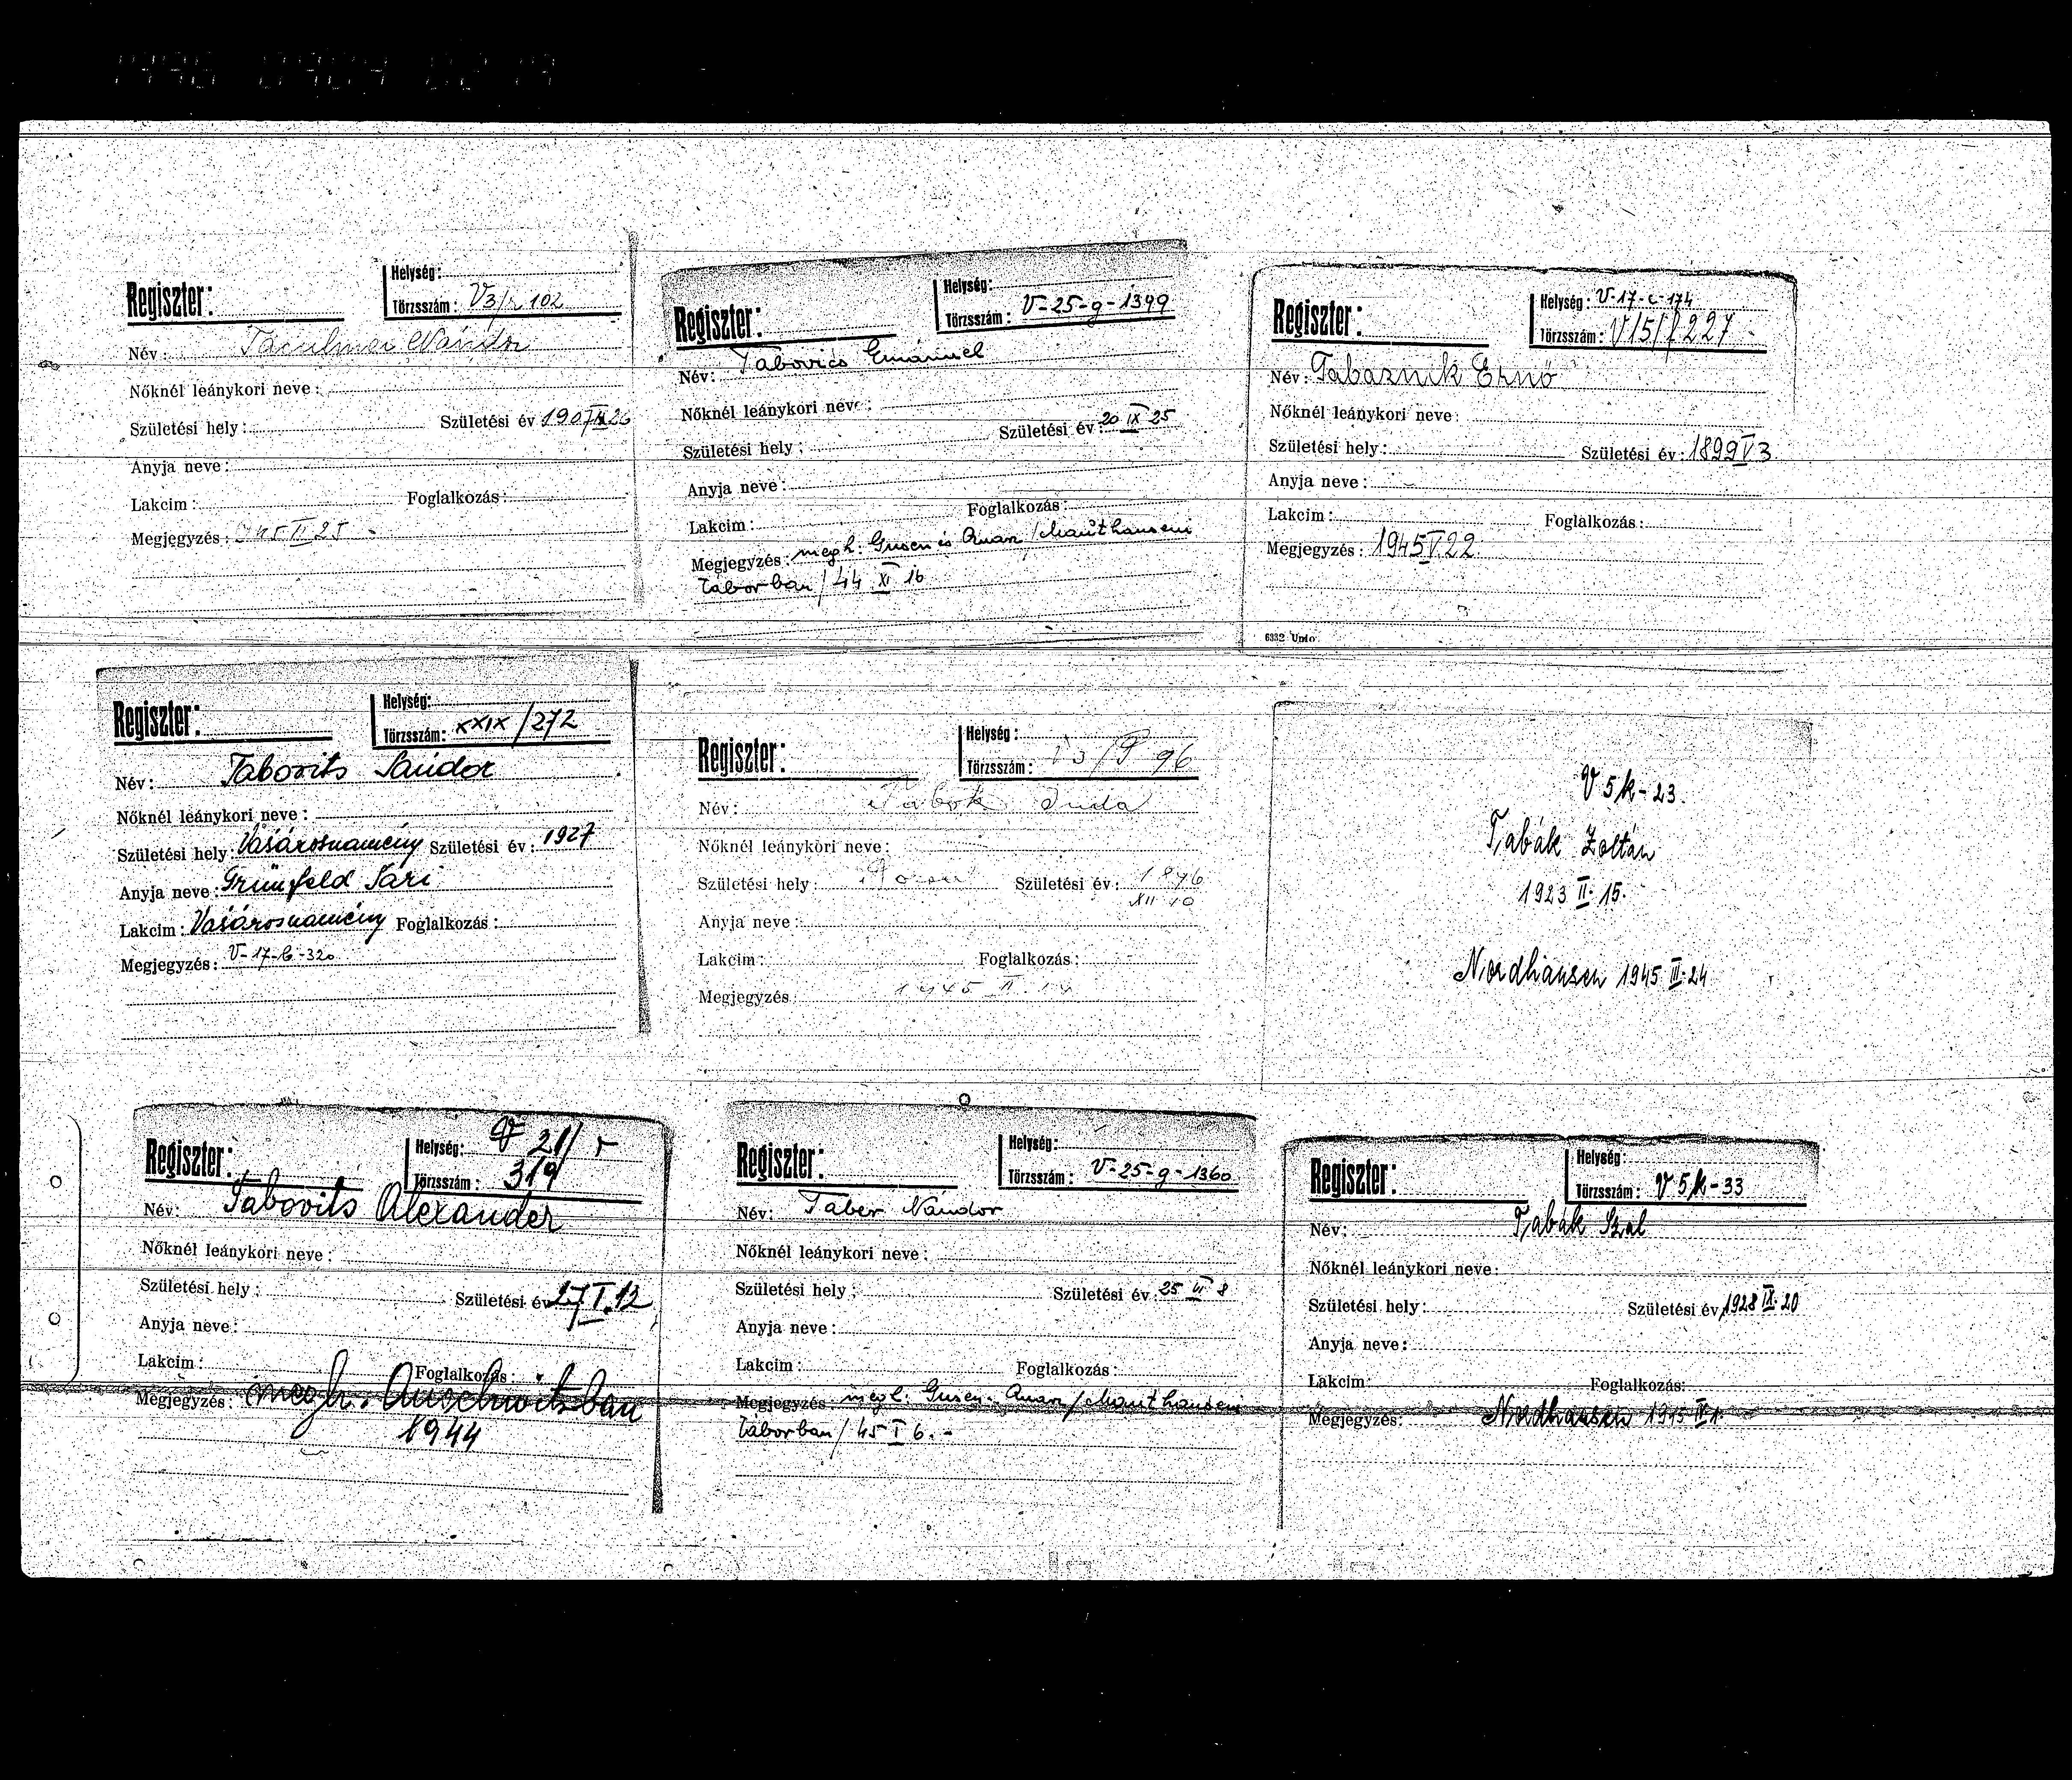 Regiszter:
Helység:
Törzsszám: V3/r 102
Név: Nándor
Nőknél leánykori neve:
Születési hely: Születési év 1907
Anyja neve:
Lakcim: Foglalkozás:
Megjegyzés: 945 II 25
Regiszter:
Helység:
Törzsszám: V-25-g-1399
Név: Tabovics Emánuel
Nőknél leánykori neve:
Születési hely: Születési év: 20 IX 25
Anyja neve:
Lakcim: Foglalkozás:
Megjegyzés: megh. Gusen és /Mauthauseni
táborban/ 44 XI 16
Regiszter:
Helység: V-17-c-174
Törzsszám: V/5/ 227
Név: Tabaznik Ernő
Nőknél leánykori neve:
Születési hely: Születési év: 1899 V 3
Anyja neve:
Lakcim: Foglalkozás:
Megjegyzés: 1945 V 22
6332 Unio
Regiszter:
Helység:
Törzsszám: XXIX/272
Név: Tabovits Sándor
Nőknél leánykori neve:
Születési hely: Vásárosnamény Születési év: 1927
Anyja neve: Grünfeld Sári
Lakcim: Vásárosnamény Foglalkozás:
Megjegyzés: V-17-b-320
Regiszter:
Helység:
Törzsszám: 96
Név: Tabok Juda
Nőknél leánykori neve:
Születési hely: Születési év: 1896
XII 10
Anyja neve:
Lakcim: Foglalkozás:
Megjegyzés 1945 II. 14
V 5/k-23.
Tabák Zoltán
1923 II. 15.
Nordhausen 1945 III. 24
Regiszter:
Helység: V 21/r
Törzsszám: 319
Név: Tabovits Alexander
Nőknél leánykori neve:
Születési hely: Születési év 27 I. 12
Anyja neve:
Lakcim: Foglalkozás:
Megjegyzés: megh. Auschwitzban
1944
Regiszter:
Helység:
Törzsszám: V-25-g-1360
Név: Taber Nándor
Nőknél leánykori neve:
Születési hely: Születési év: 25 VI 8
Anyja neve:
Lakcim: Foglalkozás:
Megjegyzés: megh. Gusen /Mauthauseni
táborban/ 45 I 6.-
Regiszter:
Helység:
Törzsszám: V 5/k-33
Név: Tabák Szal
Nőknél leánykori neve:
Születési hely: Születési év 1928 IX. 20
Anyja neve:
Lakcim: Foglalkozás:
Megjegyzés: Nordhausen 1945 IV. 1.